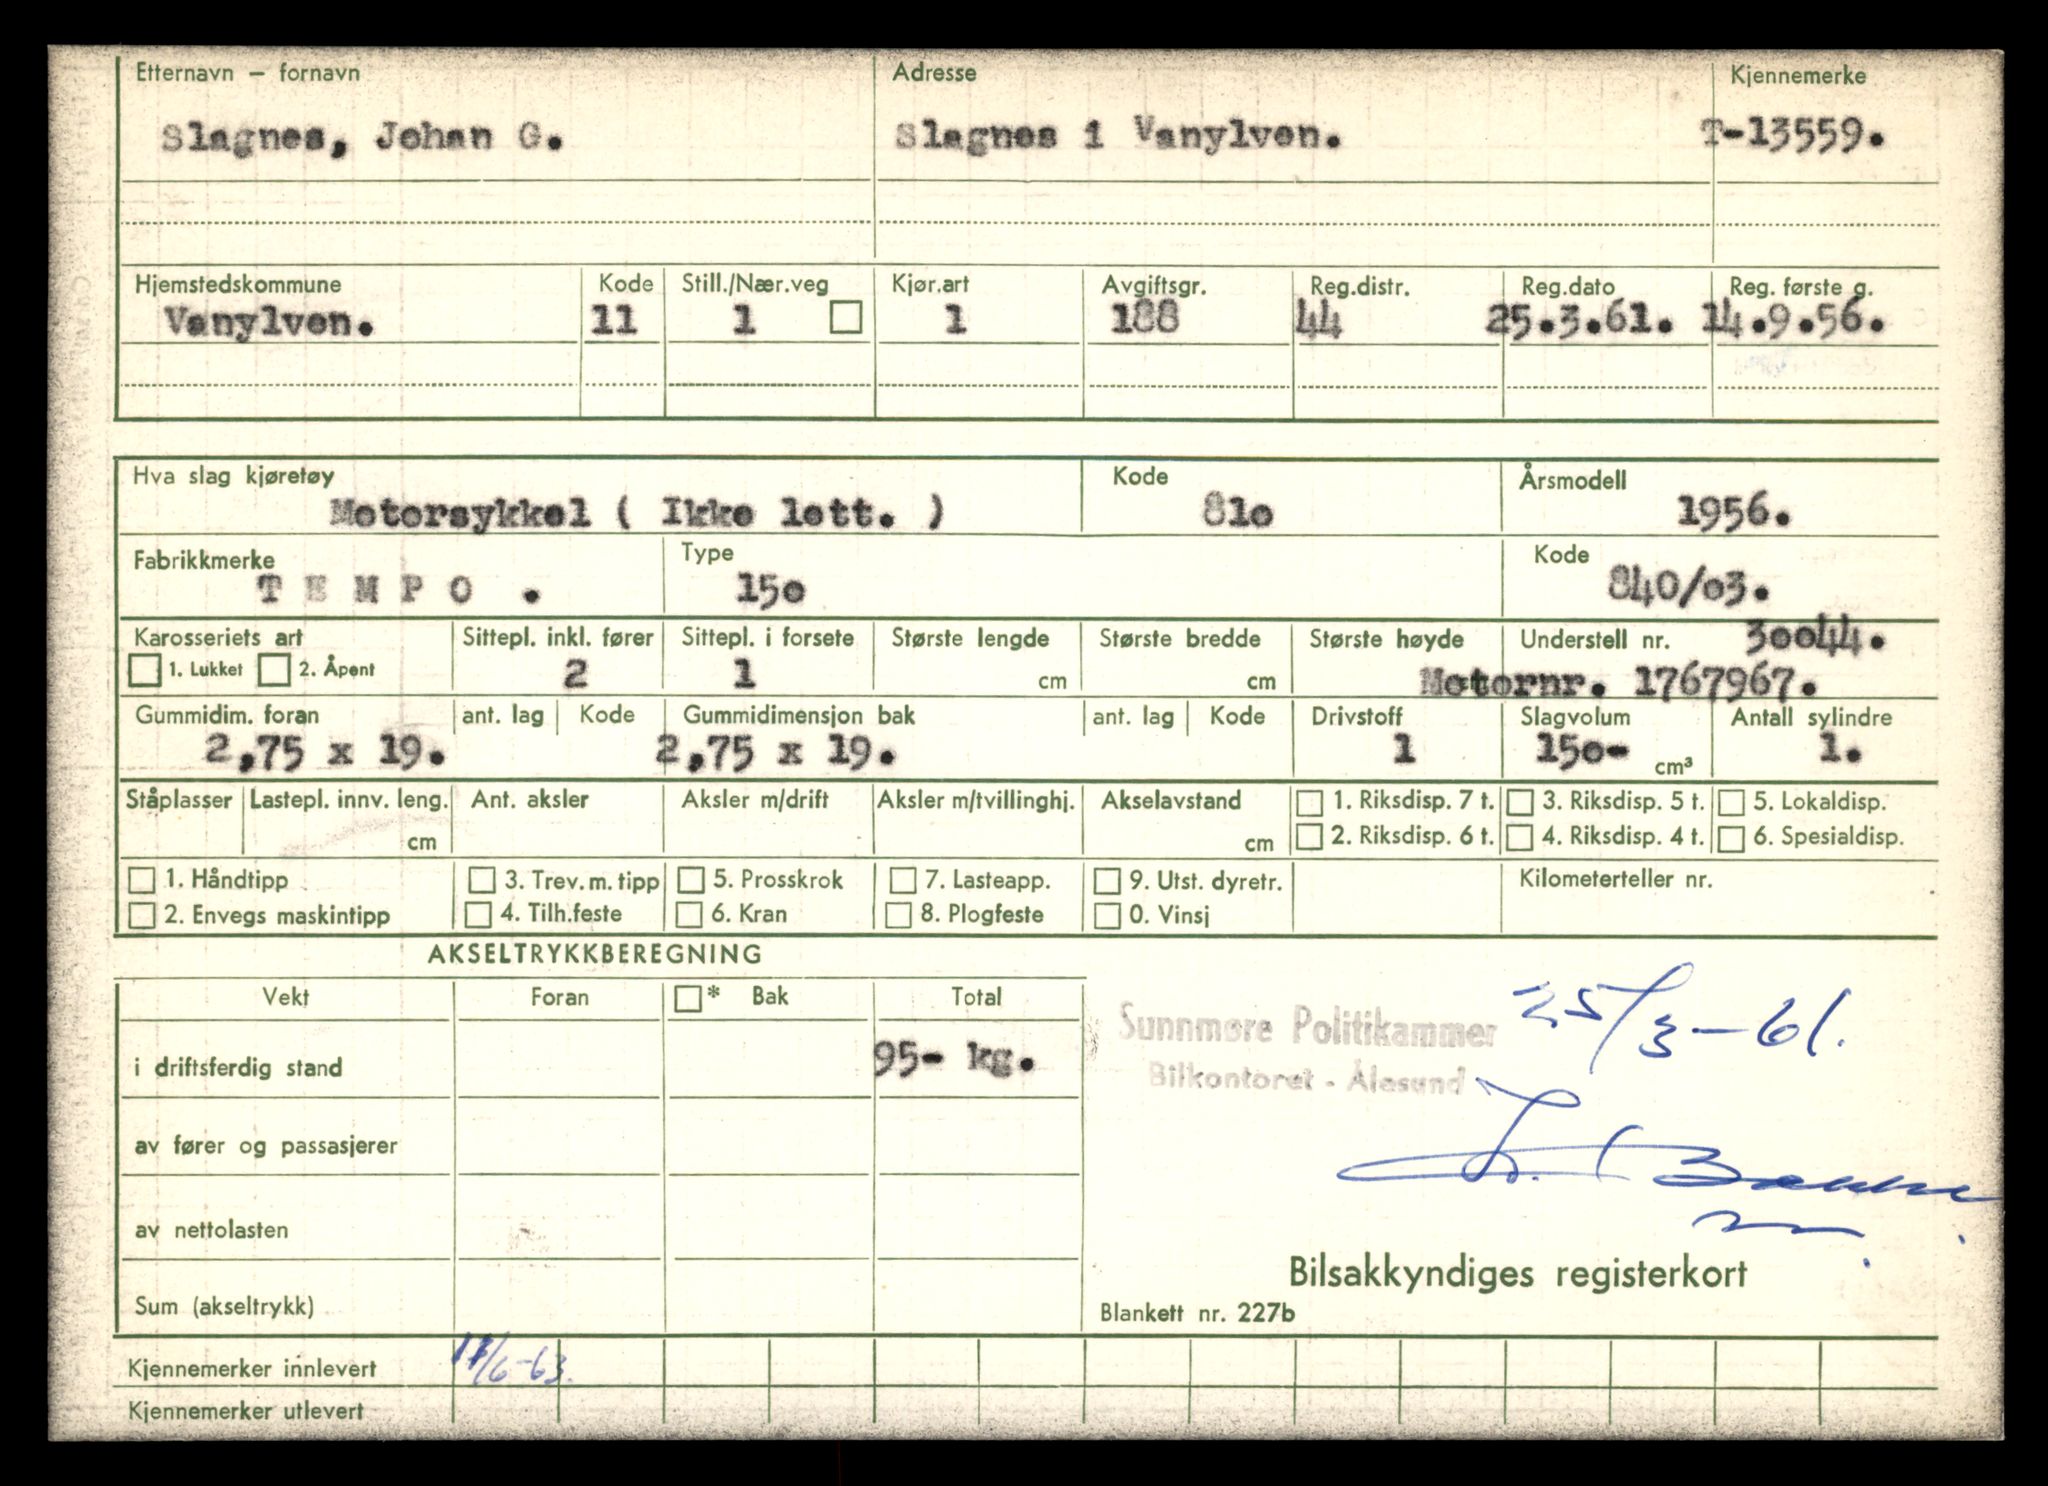 Etternavn – fornavn Adresse Kjennemerke
Slagnes, Johan G. Slagnes i Vanylven. T-13559.
Hjemstedskommune Kode Still./Nær.veg Kjør.art Avgiftsgr. Reg.distr. Reg.dato Reg. første g.
Vanylven. 11 1 1 188 44 25.3.61. 14.9.56.
Hva slag kjøretøy Kode Årsmodell
Motorsykkel ( Ikke lett. ) 81o 1956.
Fabrikkmerke Type Kode
T E M P O . 15o 840/o3.
Karosseriets art Sittepl. inkl. fører Sittepl. i forsete Største lengde Største bredde Største høyde Understell nr. 3oo44.
1. Lukket 2. Åpent 2 1 cm cm Motornr. 1767967.
Gummidim. foran ant. lag Kode Gummidimensjon bak ant. lag Kode Drivstoff Slagvolum Antall sylindre
2,75 x 19. 2,75 x 19. 1 15o- cm³ 1.
Ståplasser Lastepl. innv. leng. Ant. aksler Aksler m/drift Aksler m/tvillinghj. Akselavstand 1. Riksdisp. 7 t. 3. Riksdisp. 5 t. 5. Lokaldisp.
cm cm 2. Riksdisp. 6 t. 4. Riksdisp. 4 t. 6. Spesialdisp.
1. Håndtipp 3. Trev. m. tipp 5. Prosskrok 7. Lasteapp. 9. Utst. dyretr. Kilometerteller nr.
2. Envegs maskintipp 4. Tilh.feste 6. Kran 8. Plogfeste 0. Vinsj
AKSELTRYKKBEREGNING
Vekt Foran * Bak Total
Sunnmøre Politikammer 25/3-61.
i driftsferdig stand 95- kg.
Bilkontoret - Ålesund
av fører og passasjerer
av nettolasten
Bilsakkyndiges registerkort
Sum (akseltrykk)
Blankett nr. 227b
Kjennemerker innlevert /6-63.
Kjennemerker utlevert